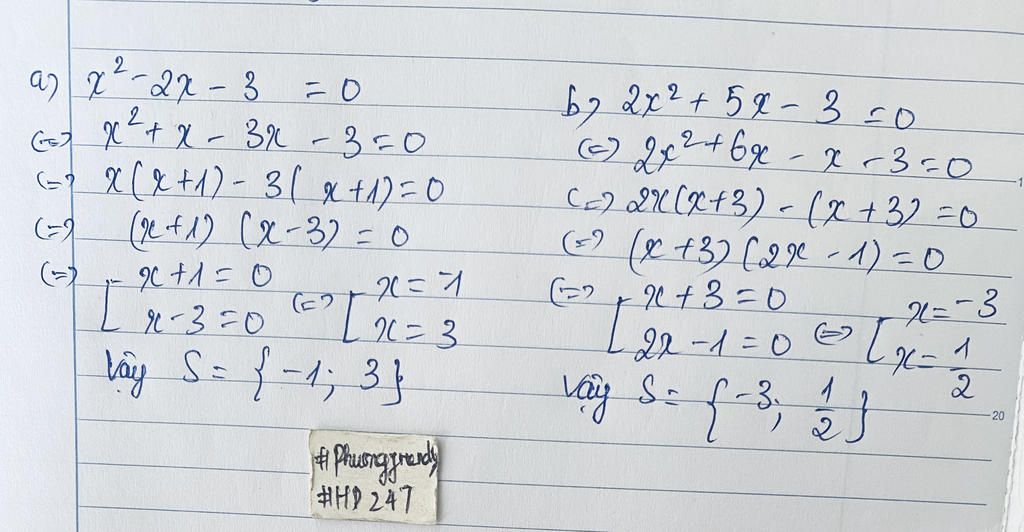 a) x² - 2x - 3 = 0
(=) x² + x - 3x - 3 = 0
(=) x(x+1) - 3(x+1) = 0
(=) (x+1) (x-3) = 0
(=) [ x+1 = 0
x-3 = 0 (=) [ x = -1
x = 3
Vậy S = { -1; 3 }
b) 2x² + 5x - 3 = 0
(=) 2x² + 6x - x - 3 = 0
(=) 2x(x+3) - (x+3) = 0
(=) (x+3) (2x - 1) = 0
(=) [ x + 3 = 0
2x - 1 = 0 (=) [ x = -3
x = 1/2
Vậy S = { -3; 1/2 }
20
#HD 247